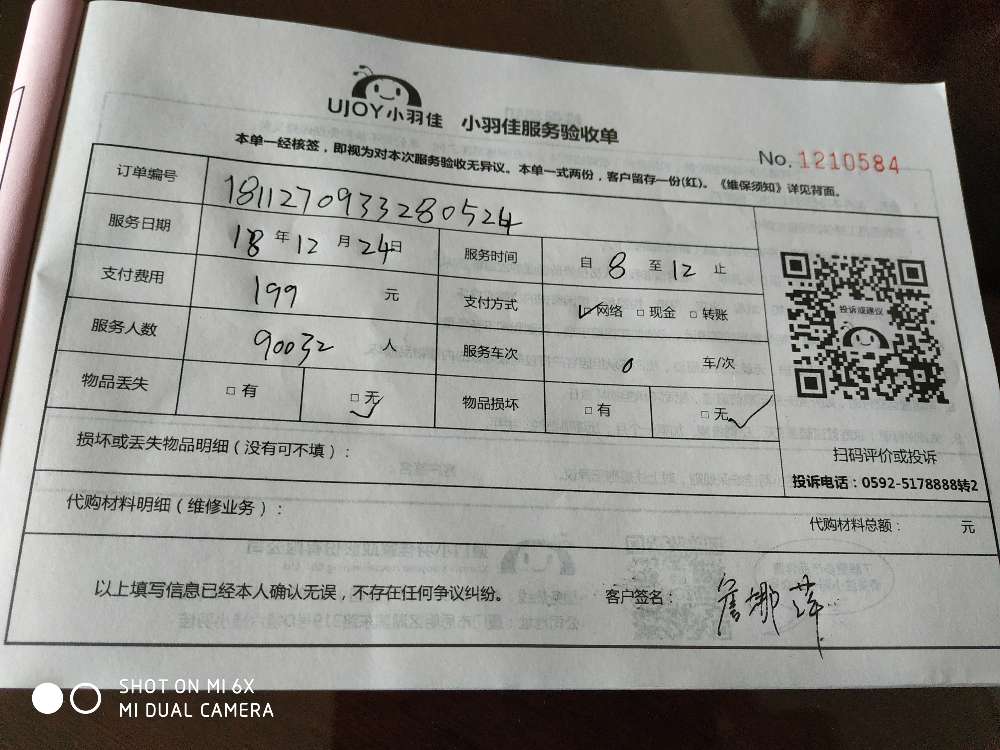 UJOY小羽佳 小羽佳服务验收单
No. 1210584
本单一经核签，即视为对本次服务验收无异议。本单一式两份，客户留存一份(红)。《维保须知》详见背面。
订单编号 1811270933280524
服务日期 18 年 12 月 24 日 服务时间 自 8 至 12 止
支付费用 199 元 支付方式 ☑网络 □现金 □转账
服务人数 90032 人 服务车次 0 车/次
物品丢失 □有 □无✓ 物品损坏 □有 □无✓
投诉或建议
扫码评价或投诉
投诉电话：0592-5178888转2
损坏或丢失物品明细（没有可不填）：
代购材料明细（维修业务）：
代购材料总额： 元
以上填写信息已经本人确认无误，不存在任何争议纠纷。 客户签名： 詹娜萍
SHOT ON MI 6X
MI DUAL CAMERA